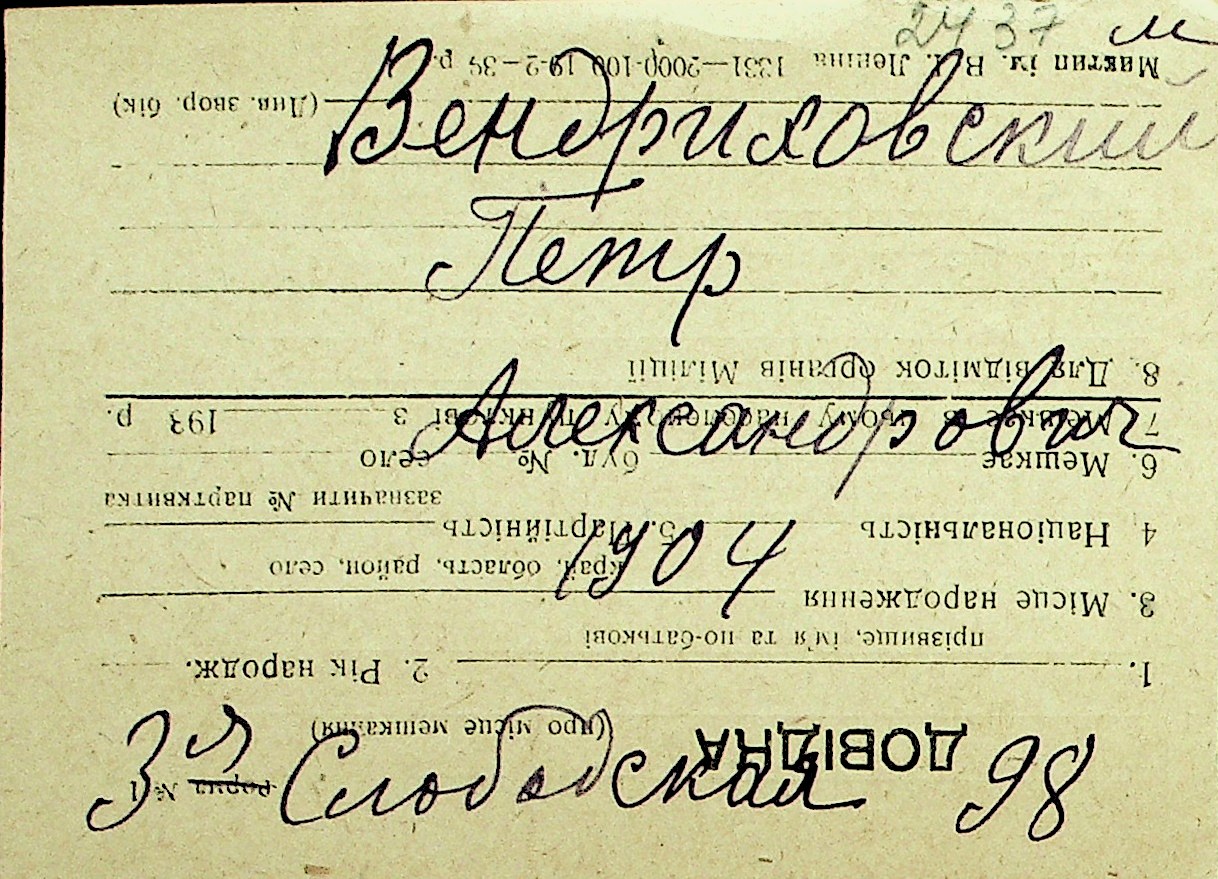 2437 м
Миктип ім. В. І. Леніна 1331—200р-100 19-2-39 р.
(Див. звор. бік)
Вендриховский
Петр
Александрович
1904
3я Слободская 98
ДОВІДНА
(про місце мешкання)
Форма № 1
1. 2. Рік народж.
прізвище, ім'я та по-батькові
3. Місце народження
край, область, район, село
4 Національність 5. Партійність
зазначити № партквитка
6. Мешкає буд. № село
7 Мешкає в цьому населеному пунктові з 193 р.
8. Для відміток органів Міліції